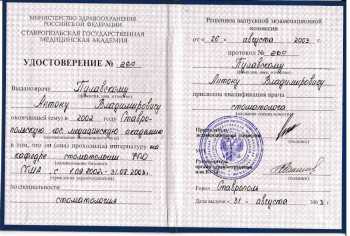 МИНИСТЕРСТВО ЗДРАВООХРАНЕНИЯ
РОССИЙСКОЙ ФЕДЕРАЦИИ
СТАВРОПОЛЬСКАЯ ГОСУДАРСТВЕННАЯ
МЕДИЦИНСКАЯ АКАДЕМИЯ
УДОСТОВЕРЕНИЕ №
Выдано врачу Пулавскому
Антону Владимировичу
окончившему в 2002 году Ставро-
польскую гос. медицинскую академию
в том, что он (она) проходил интернатуру на
кафедре стоматологии ФПО
СГМА с 1.09.2002 - 31.08.2003г.
по специальности
стоматология
Решением выпускной экзаменационной
комиссии
от « 20 » августа 2003 г.
протокол №
Пулавскому
Антону Владимировичу
присвоена квалификация врача
стоматолога
Председатель
Город Ставрополь
Дата выдачи « 31 » августа 2003 г.